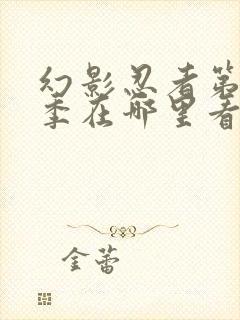 幻影忍者第
季在哪里看
金蕾